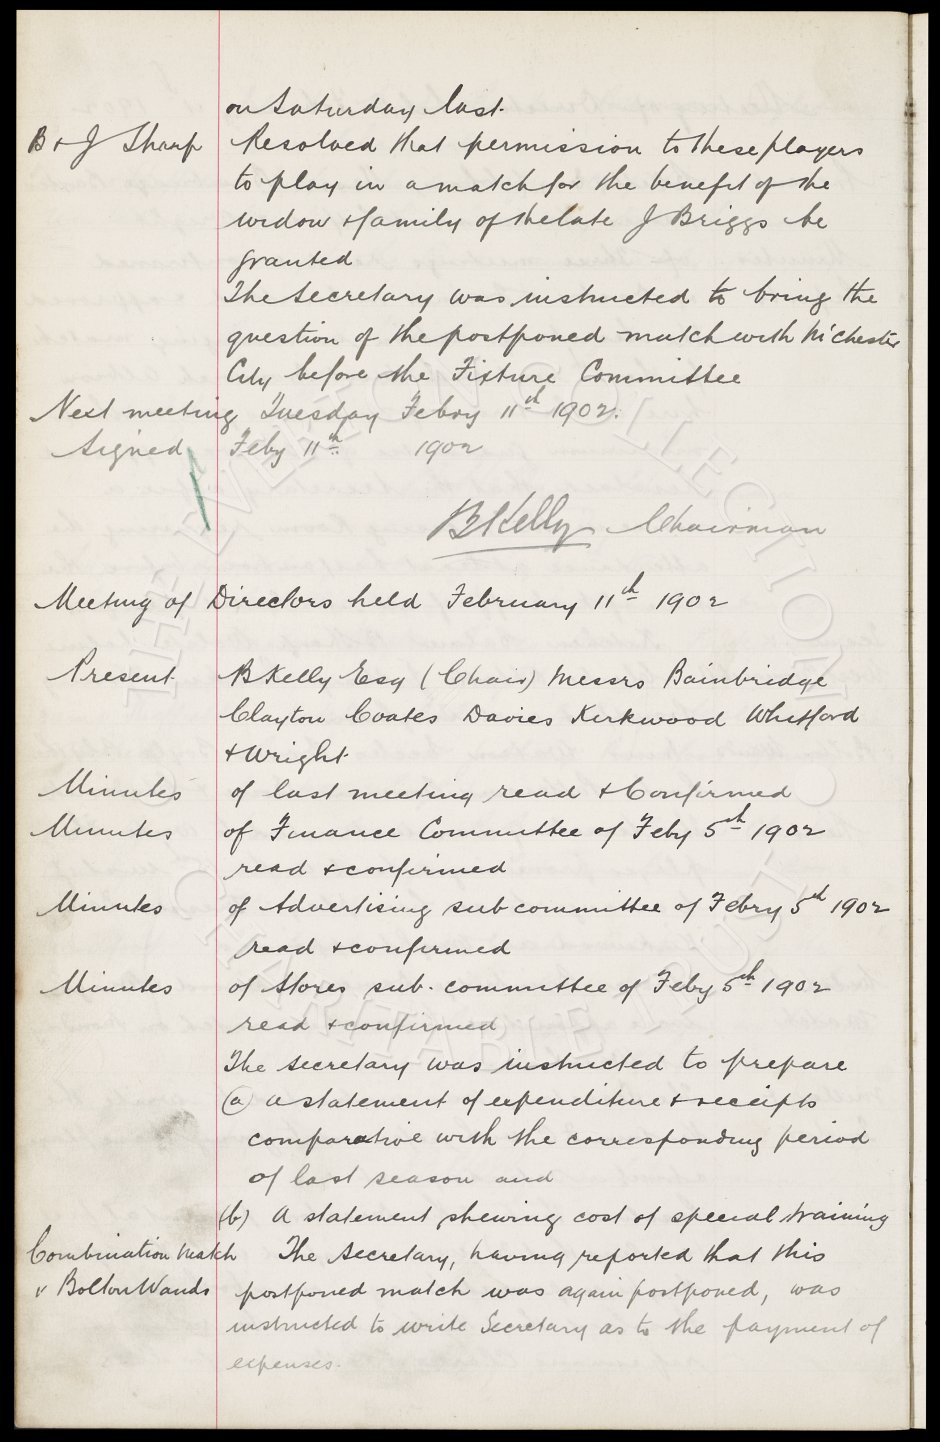 on Saturday last.
B & J Sharp Resolved that permission to these players
to play in a match for the benefit of the
widow & family of the late J Briggs be
granted
The Secretary was instructed to bring the
question of the postponed match with M'chester
City before the Fixture Committee
Next meeting Tuesday Febry 11th 1902.
Signed Feby 11th 1902
B Kelly Chairman
Meeting of Directors held February 11th 1902
Present B Kelly Esq (Chair) Messrs Bainbridge
Clayton Coates Davies Kirkwood Whitford
& Wright.
Minutes of last meeting read & Confirmed
Minutes of Finance Committee of Feby 5th 1902
read & confirmed
Minutes of Advertising sub committee of Febry 5th 1902
read & confirmed
Minutes of Stores sub-committee of Feby 5th 1902
read & confirmed
The secretary was instructed to prepare
(a) a statement of expenditure & receipts
comparative with the corresponding period
of last season and
(b) A statement shewing cost of special training
Combination Match The Secretary, having reported that this
v Bolton Wands postponed match was again postponed, was
instructed to write Secretary as to the payment of
expenses.
THE EVERTON COLLECTION
CHARITABLE TRUST